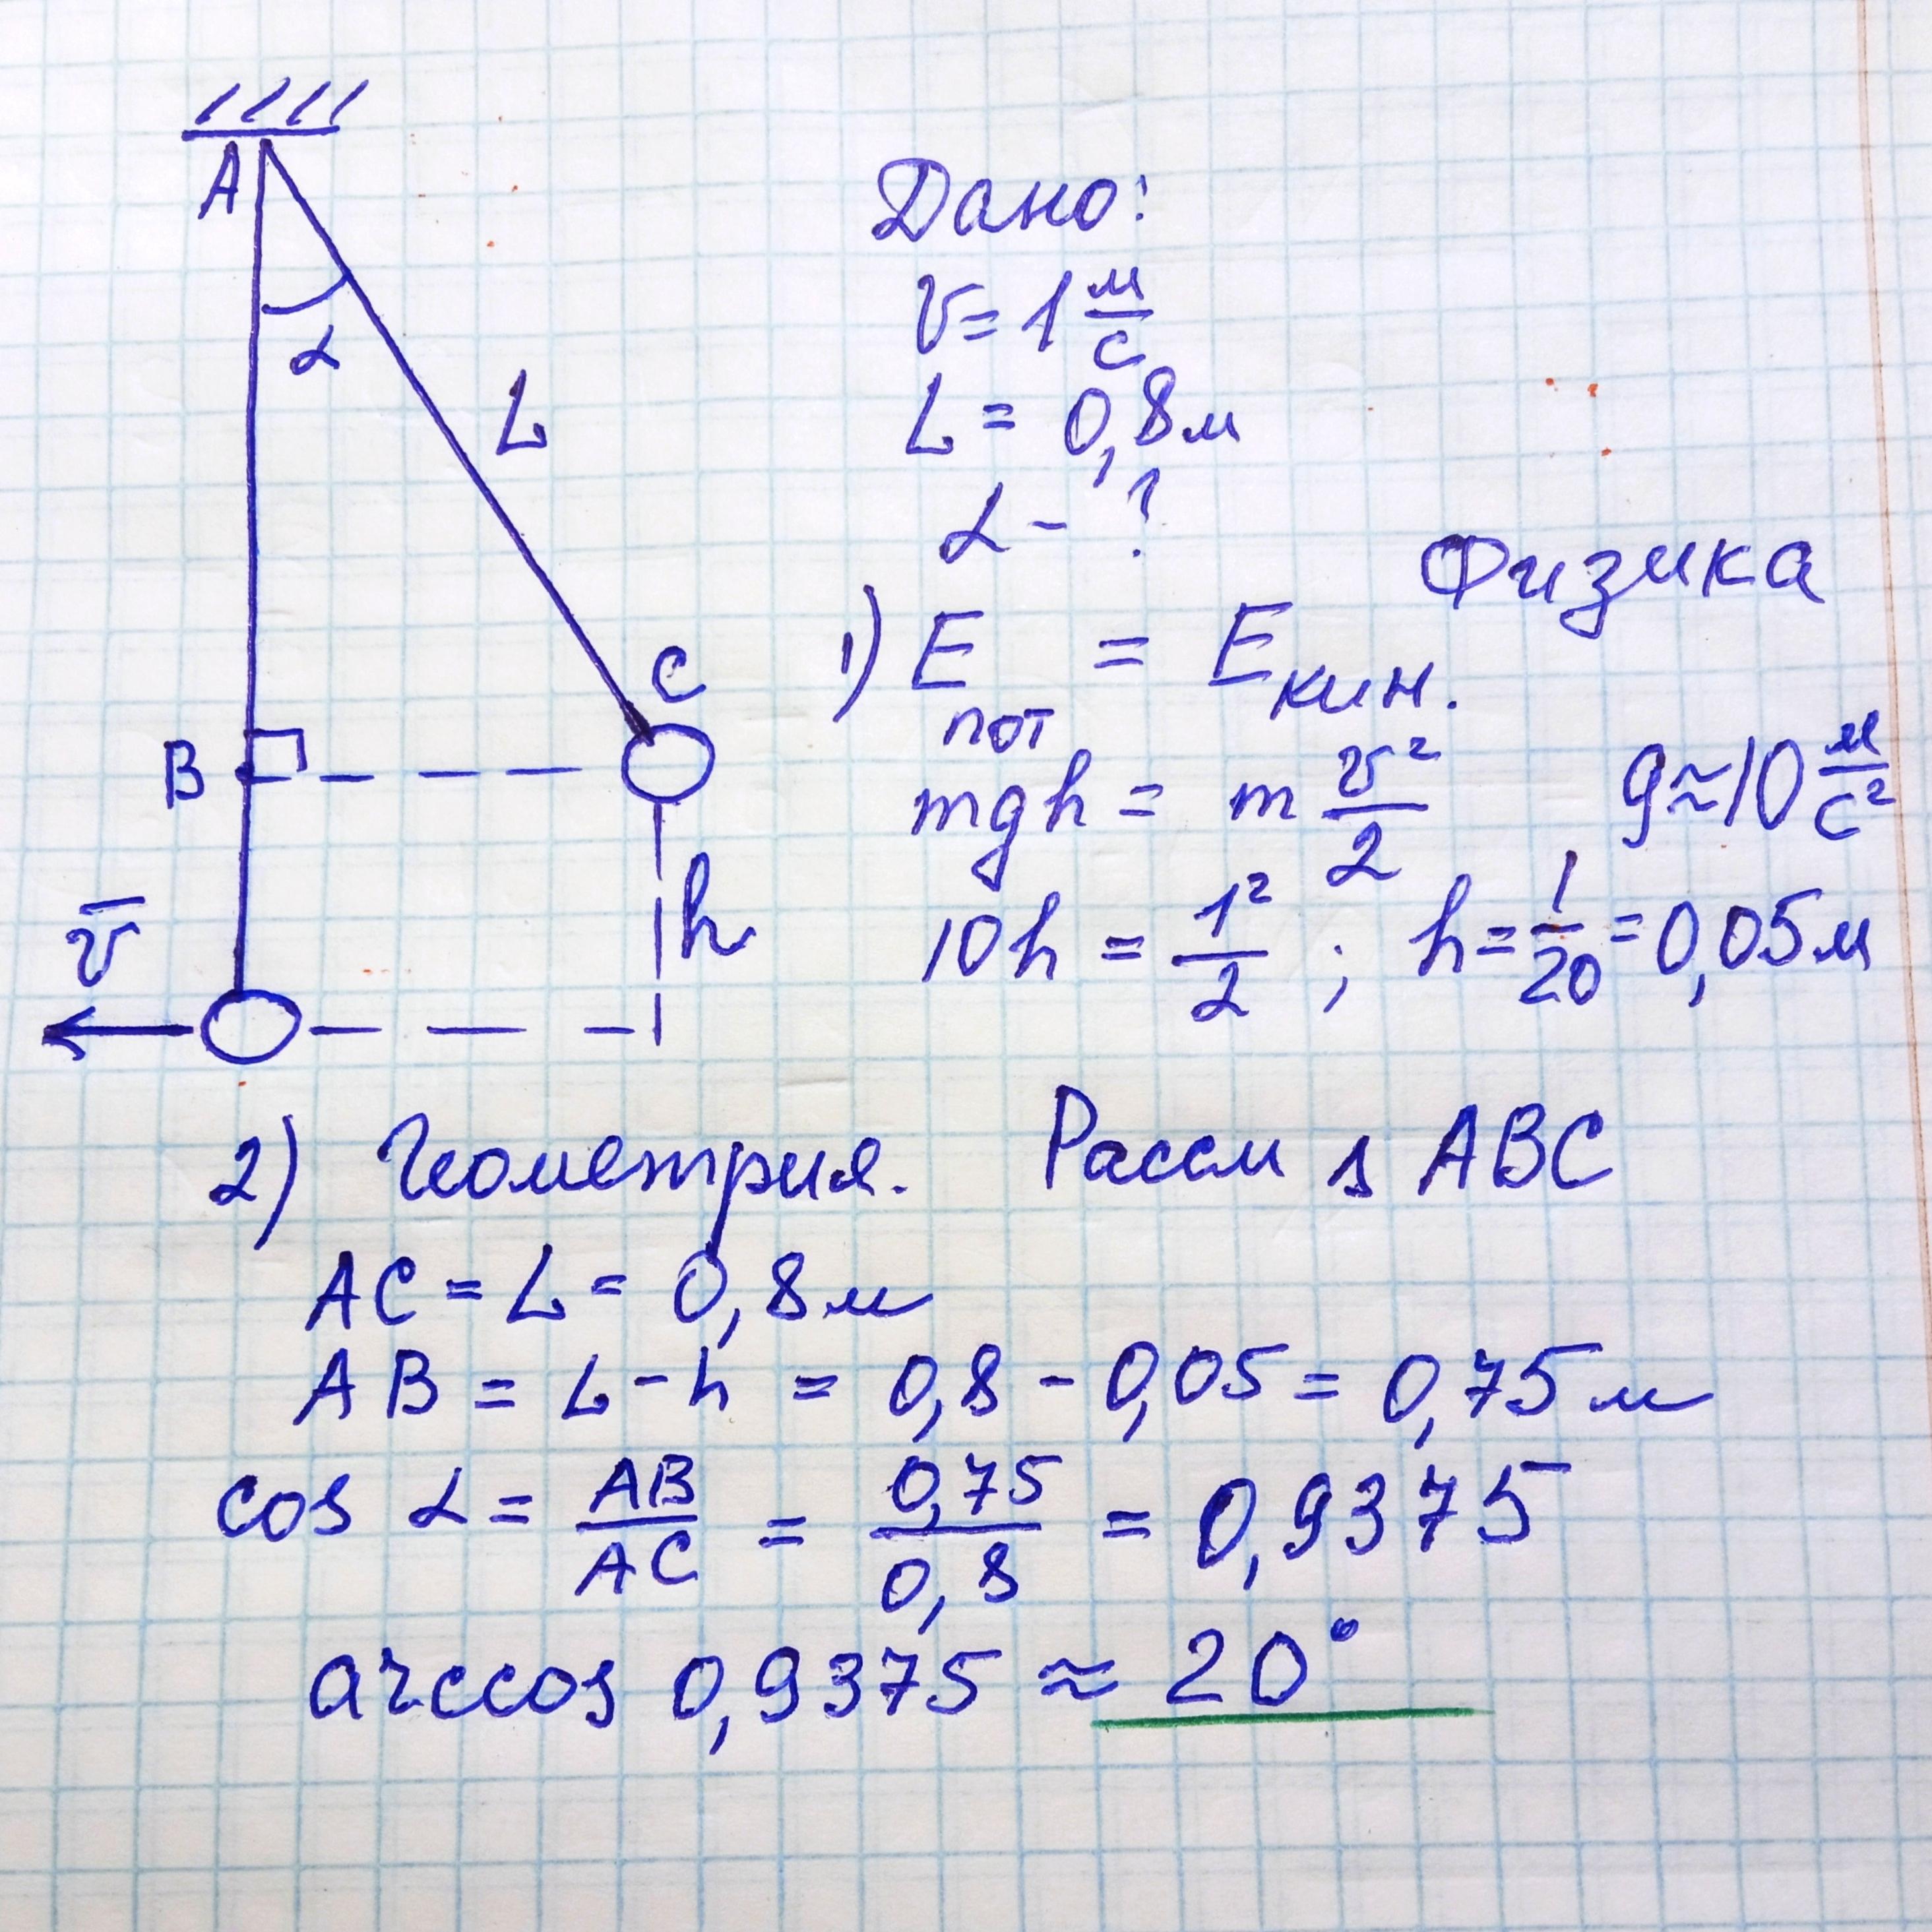 A
α
L
C
B
h
v̄
Дано:
v = 1 м/с
L = 0,8 м
α - ?
Физика
1) E пот = E кин.
mgh = m v²/2    g ≈ 10 м/с²
10h = 1²/2 ; h = 1/20 = 0,05 м
2) Геометрия. Рассм △ ABC
AC = L = 0,8 м
AB = L - h = 0,8 - 0,05 = 0,75 м
cos α = AB/AC = 0,75/0,8 = 0,9375
arccos 0,9375 ≈ 20°